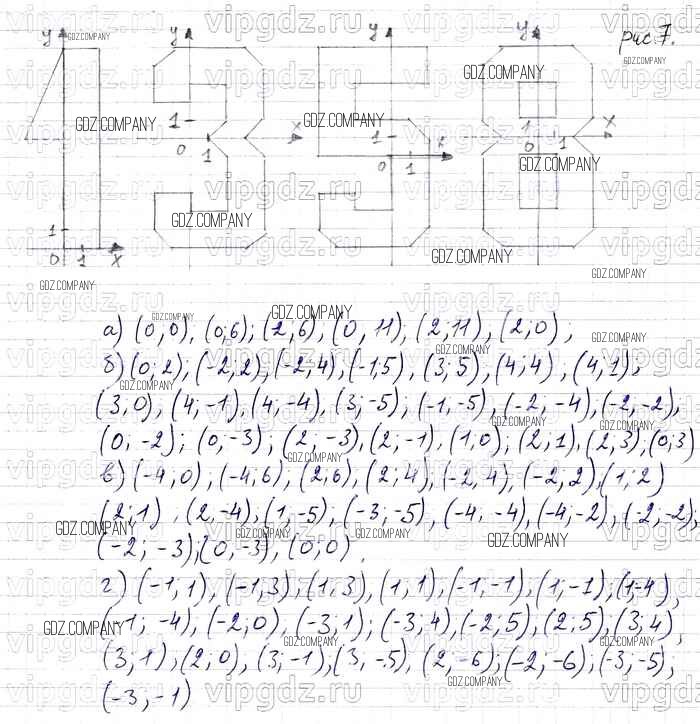 рис 7.
y y y y
1 x 1 x 1 x
0 1 0 1 0 1
1
0 1 x
а) (0,0), (0;6); (2;6), (0, 11), (2,11), (2;0);
б) (0;2); (-2;2), (-2,4), (-1;5), (3;5), (4;4), (4,1),
(3,0), (4;-1), (4,-4), (3;-5); (-1,-5), (-2,-4), (-2,-2),
(0,-2); (0,-3); (2,-3), (2;-1), (1,0); (2,1), (2,3), (0;3)
в) (-4;0), (-4;6), (2,6), (2;4), (-2,4), (-2,2), (1;2)
(2;1), (2,-4), (1,-5), (-3;-5), (-4,-4), (-4;-2), (-2;-2);
(-2;-3), (0,-3), (0;0),
г) (-1,1), (-1,3), (1,3), (1,1), (-1,-1), (1;-1); (1;-4),
(-1;-4), (-2;0), (-3,1); (-3;4), (-2;5), (2;5), (3;4),
(3,1), (2;0), (3;-1); (3,-5), (2,-6); (-2;-6); (-3;-5),
(-3,-1)
GDZ.COMPANY
vipgdz.ru